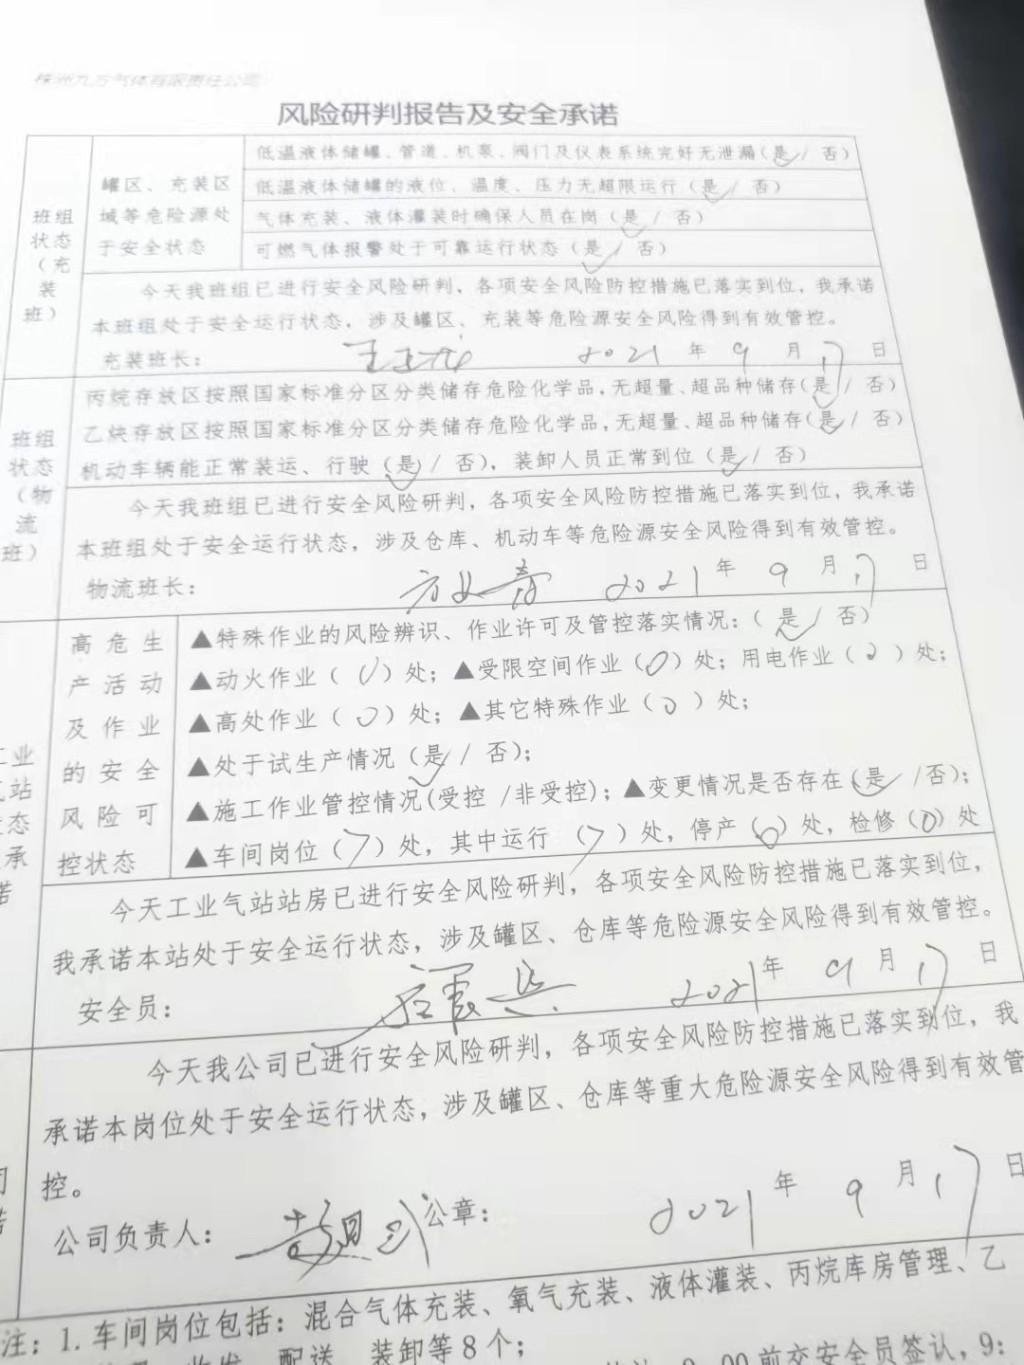 株洲九方气体有限责任公司
风险研判报告及安全承诺
班组状态（充装班）
罐区、充装区域等危险源处于安全状态
低温液体储罐、管道、机泵、阀门及仪表系统完好无泄漏（是√/ 否）
低温液体储罐的液位、温度、压力无超限运行（是√/ 否）
气体充装、液体灌装时确保人员在岗（是√/ 否）
可燃气体报警处于可靠运行状态（是√/ 否）
今天我班组已进行安全风险研判，各项安全风险防控措施已落实到位，我承诺
本班组处于安全运行状态，涉及罐区、充装等危险源安全风险得到有效管控。
充装班长： 2021 年 9 月 17 日
班组状态（物流班）
丙烷存放区按照国家标准分区分类储存危险化学品，无超量、超品种储存（是√/ 否）
乙炔存放区按照国家标准分区分类储存危险化学品，无超量、超品种储存（是√/ 否）
机动车辆能正常装运、行驶（是√/ 否），装卸人员正常到位（是√/ 否）
今天我班组已进行安全风险研判，各项安全风险防控措施已落实到位，我承诺
本班组处于安全运行状态，涉及仓库、机动车等危险源安全风险得到有效管控。
物流班长： 2021 年 9 月 17 日
高危生产活动及作业的安全风险可控状态
▲特殊作业的风险辨识、作业许可及管控落实情况：（ 是√/ 否）
▲动火作业（ 0 ）处；▲受限空间作业（0）处；用电作业（ 2 ）处；
▲高处作业（ 0 ）处；▲其它特殊作业（ 0 ）处；
▲处于试生产情况（是√/ 否）；
▲施工作业管控情况（受控 /非受控）；▲变更情况是否存在（是√/否）；
▲车间岗位（7）处，其中运行 （7）处，停产（0）处，检修（0）处
今天工业气站站房已进行安全风险研判，各项安全风险防控措施已落实到位，
我承诺本站处于安全运行状态，涉及罐区、仓库等危险源安全风险得到有效管控。
安全员： 2021 年 9 月 17 日
今天我公司已进行安全风险研判，各项安全风险防控措施已落实到位，我
承诺本岗位处于安全运行状态，涉及罐区、仓库等重大危险源安全风险得到有效管
控。
公司负责人： 公章： 2021 年 9 月 17 日
注：1.车间岗位包括：混合气体充装、氧气充装、液体灌装、丙烷库房管理、乙
配送、装卸等8个；
前交安全员签认，9：